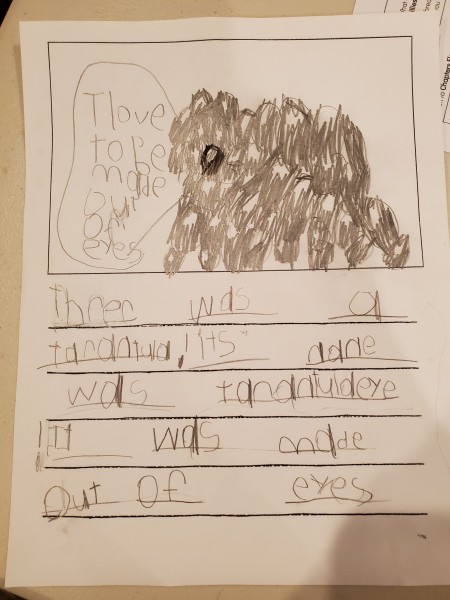 I love
to Be
made
Out
Of
eyes
threr was a
tarantula! its
nane
was tarantulaeye
! It was made
Out Of eyes